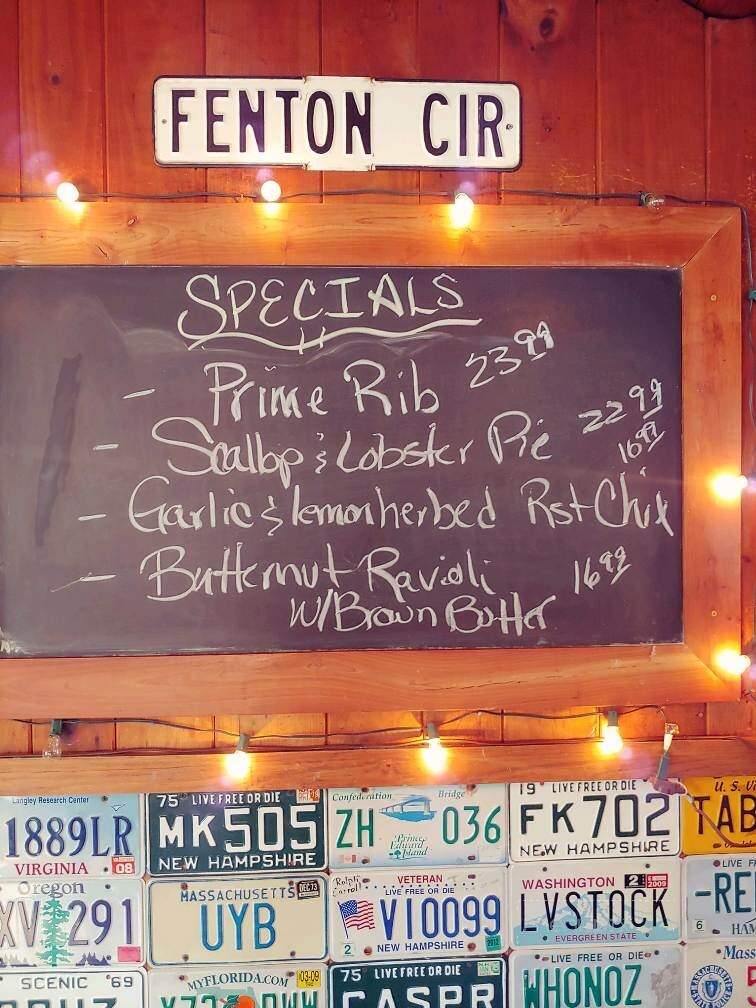 FENTON CIR
SPECIALS
- Prime Rib 23 99
- Scallop & Lobster Pie 22 99
16 99
- Garlic & lemon herbed Rst Chix
- Butternut Ravioli 16 99
W/Brown Butter
Langley Research Center
1889LR
VIRGINIA 08
75 LIVE FREE OR DIE
MK505
NEW HAMPSHIRE
Confederation Bridge
ZH 036
Prince Edward Island
19 LIVE FREE OR DIE
FK702
NEW HAMPSHIRE
U.S. Vi
TAB
Oregon
XV 291
MASSACHUSETTS DEC 73
UYB
Ralph Carroll
VETERAN
LIVE FREE OR DIE
V10099
2 NEW HAMPSHIRE 2012
WASHINGTON 2 2009
LVSTOCK
EVERGREEN STATE
LIVE F
-RE
6 HAM
SCENIC '69
MYFLORIDA.COM 03-09
75 LIVE FREE OR DIE
CASPR
LIVE FREE OR DIE
WHONOZ
Mass